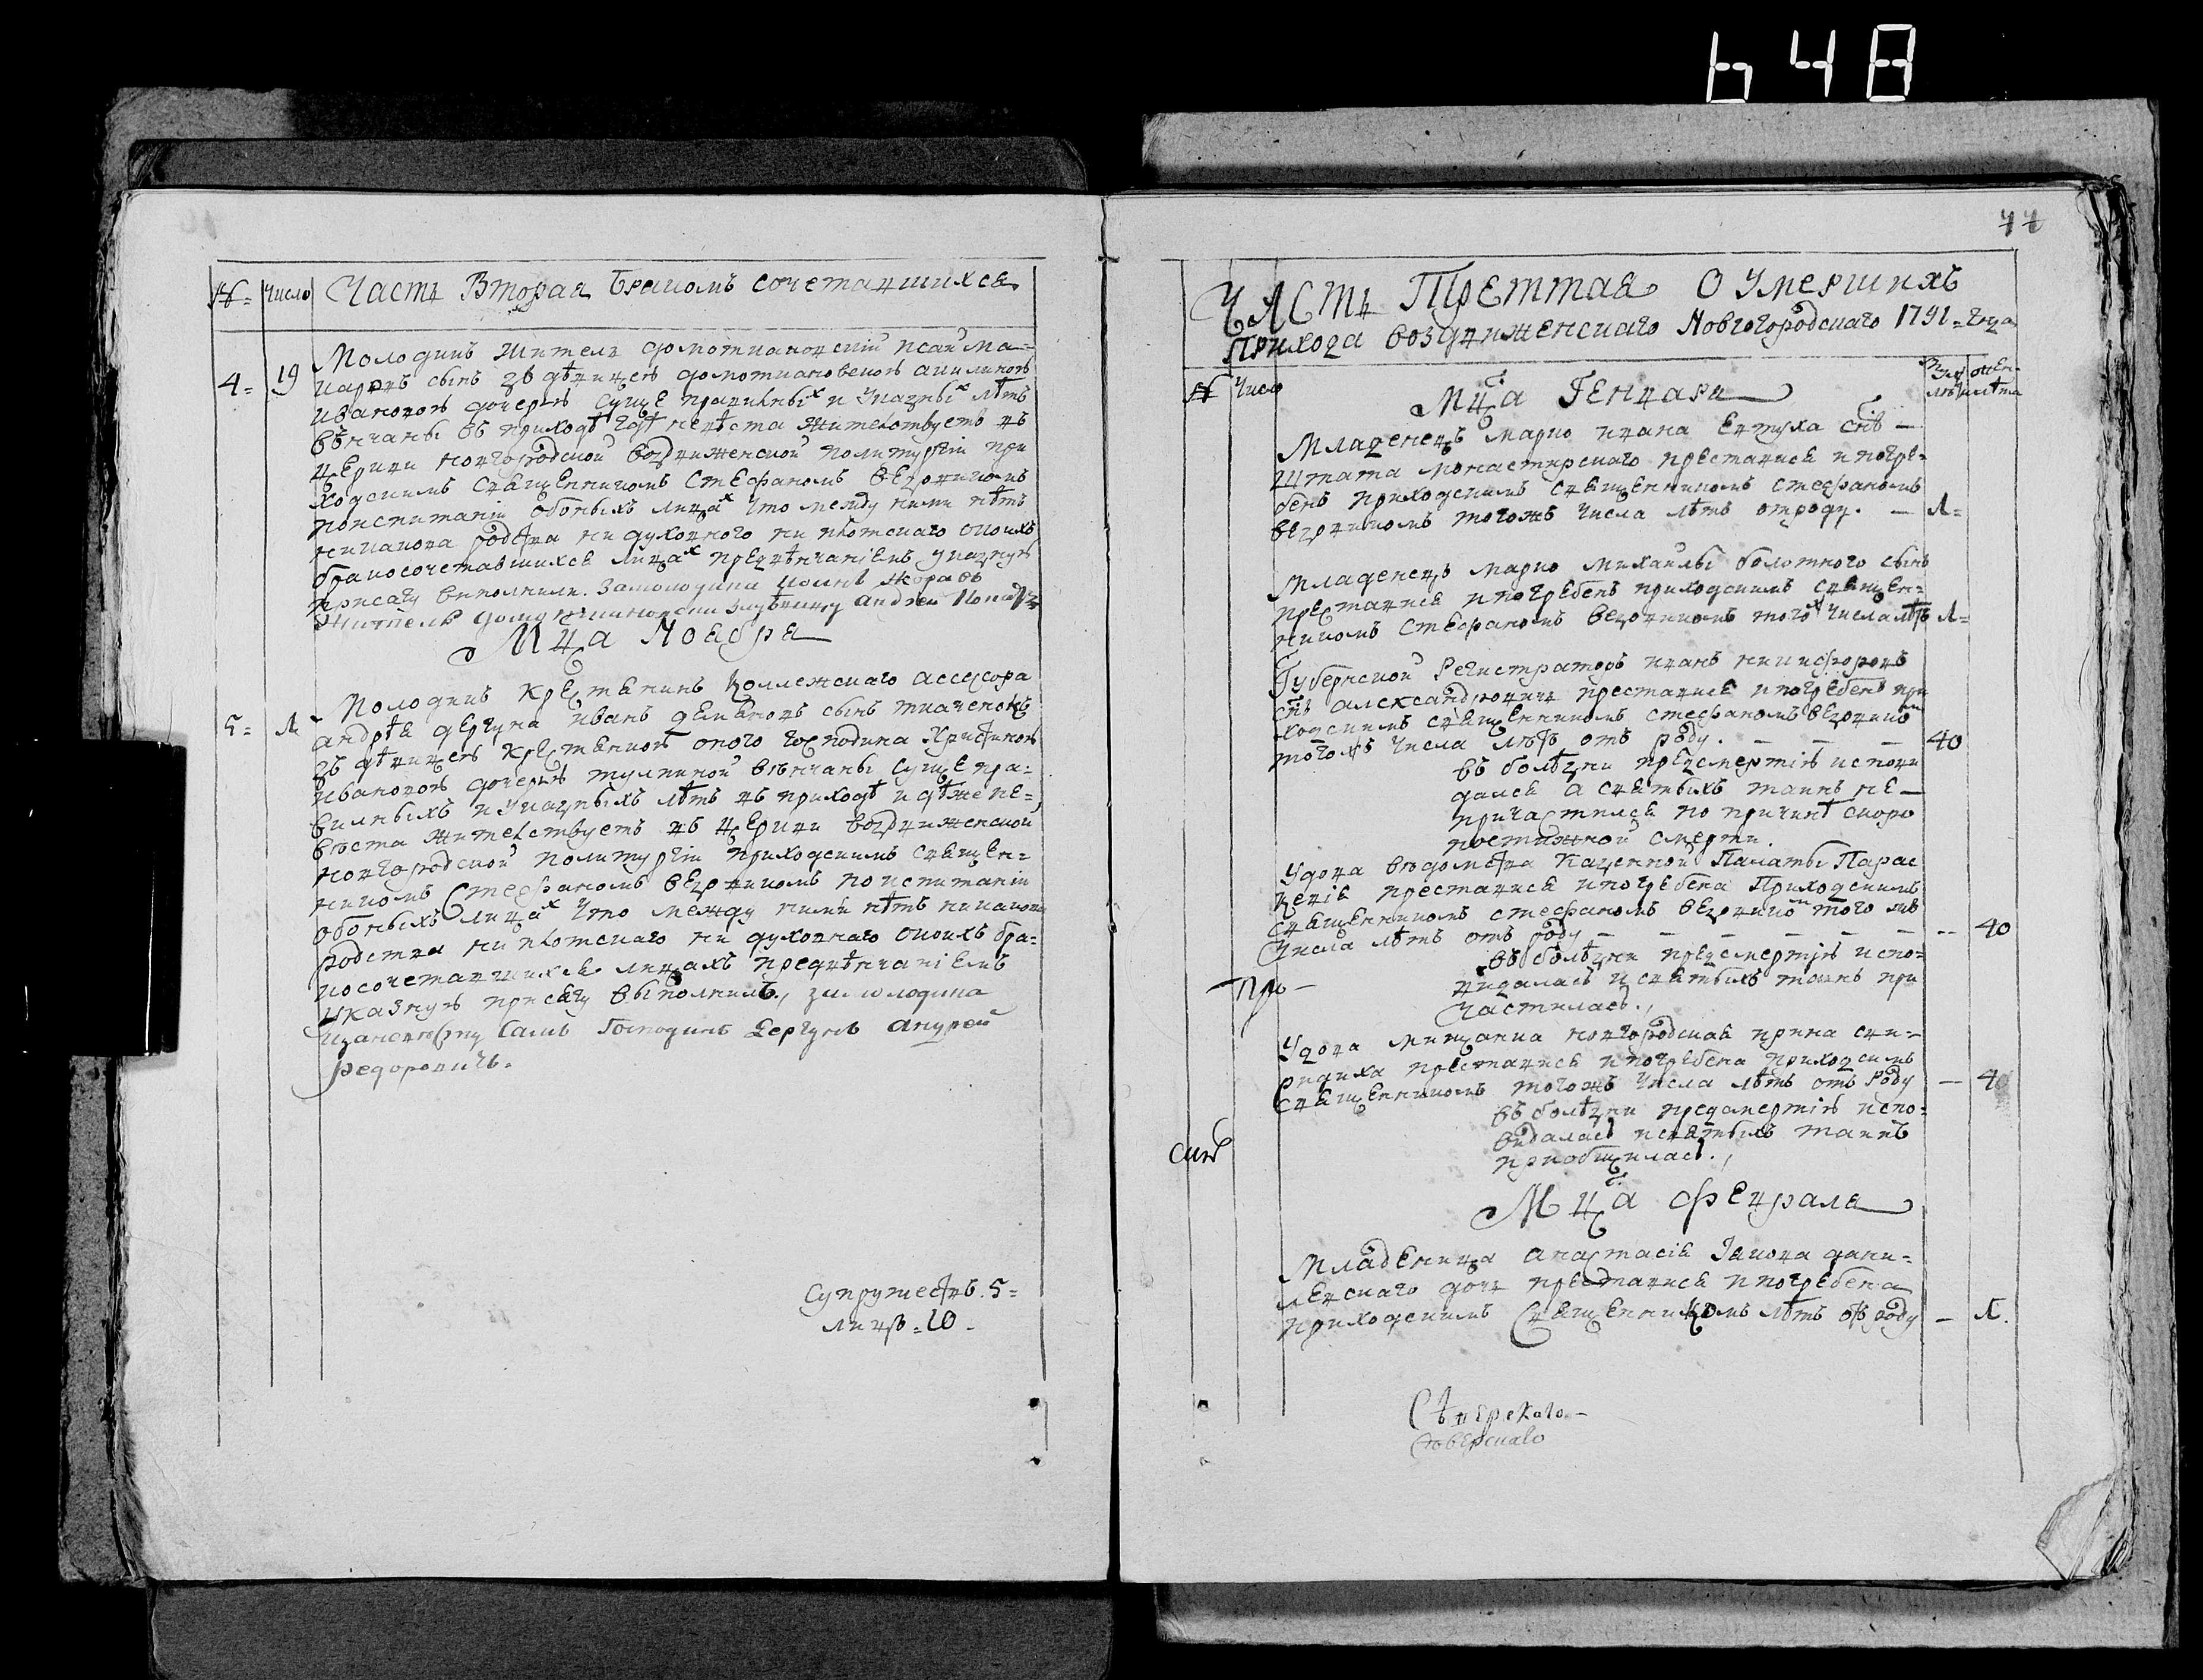 648
№ Число Часть Вторая бракомъ сочетавшихся
4 = 19 Молодикъ житель домоткановский исай ма=
каровъ сынъ зъ дѣвицею домоткановскою акилиною
Ивановою дочерью суще правилныхъ и указныхъ лѣтъ
вѣнчаны въ приходѣ где невѣста жителствуетъ въ
церкви новгородской воздвиженской политургіи при
ходскимъ священникомъ Стефаномъ
поиспитаніи обоныхъ лицах что между ними нѣтъ
никакова родства ни духовного ни плотскаго оноихъ
бракосочетавшихся лицах предвѣнчаніемъ указную
присягу виполнили. Замолодика
житель андрей
Мца Ноября
5 = Л Молодикъ крестянинъ коллежскаго ассесора
андрѣя дергуна иванъ демяновъ сынъ ткаченокъ
зъ дѣвицею крестянкою оного господина Християною
Ивановою дочерью тулпиной вѣнчаны суще пра=
вилныхъ и указныхъ лѣтъ въ приходѣ идѣже не=
вѣста жителствуетъ въ церкви воздвиженской
новгородской политургіи приходскимъ священ=
никомъ Стефаномъ поиспитаніи
обоныхъ лицах что между ними нѣтъ никакова
родства ни плотскаго ни духовнаго оноихъ бра=
косочетавшихся лицахъ предвѣнчаніемъ
указную присягу выполнилъ., замолодика
самъ господинъ Дергунъ андрей
федоровичъ.
Супружествъ. 5 =
лицъ = 10.
44
ЧАСТЬ Треттая О Умершихъ
Прихода воздвиженскаго Новгородскаго 1791 = года
№ Число Мца Генваря
Младенецъ марко ивана снъ —
штата монастирскаго преставися и погре=
бенъ приходскимъ священникомъ стефаномъ
тогожъ числа лѣтъ отроду. — Л =
Младенецъ марко михайлы болотного сынъ
преставися и погребенъ приходскимъ священ=
никомъ стефаномъ тогож числа лѣтъ Л =
Губернской Регистраторъ иванъ никифоровъ
снъ александровичъ преставися и погребенъ при
ходскимъ священникомъ стефаномъ
тогожъ числа лѣтъ отъ роду. — — — 40
въ болѣзни предсмертію исповѣ
дался а святыхъ таинъ не —
причастился по причинѣ скоро
постижной смерти.
Удова вѣдомства казенной Палаты Парас
кевія преставися и погребена Приходскимъ
священникомъ стефаномъ того жъ
числа лѣтъ отъ роду — — — — — — 40
въ болѣзни предсмертію испо=
видалась и святыхъ таинъ при
частилась.,
Про —
Удова мищанка новгородская ирина
преставися и погребена приходскимъ
священникомъ тогожъ числа лѣтъ отъ роду — 40
въ болѣзни предсмертію испо=
видалась и святыхъ таинъ
приобщилась.,
Мца Февраля
Младеница анастасія Іакова дани=
левскаго дочь преставися и погребена
приходскимъ священикомъ лѣтъ отъ роду — Л.
Сѣверскаго —